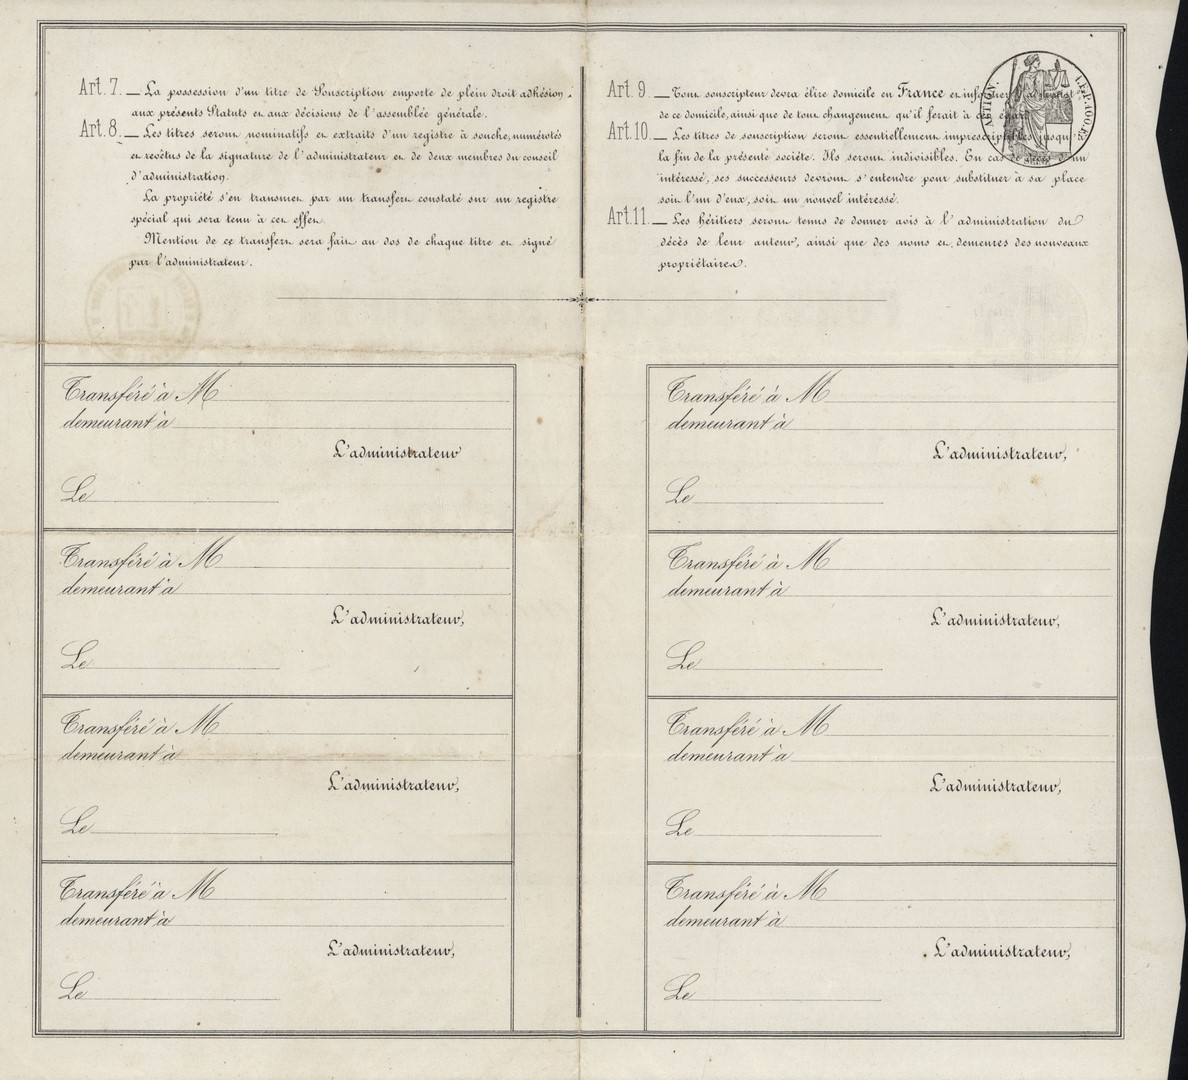 Art. 7. — La possession d'un titre de Souscription emporte de plein droit adhésion
aux présents Statuts et aux décisions de l'assemblée générale.
Art. 8. — Les titres seront nominatifs et extraits d'un registre à souche, numérotés
et revêtus de la signature de l'administrateur et de deux membres du conseil
d'administration.
La propriété s'en transmet par un transfert constaté sur un registre
spécial qui sera tenu à cet effet.
Mention de ce transfert sera fait au dos de chaque titre et signé
par l'administrateur.
Art. 9. — Tout souscripteur devra élire domicile en France et informer
de ce domicile, ainsi que de tout changement qu'il ferait à cet égard
Art. 10. — Les titres de souscription seront essentiellement imprescriptibles jusqu'
la fin de la présente société. Ils seront indivisibles. En cas de décès d'un
intéressé, ses successeurs devront s'entendre pour substituer à sa place
soit l'un d'eux, soit un nouvel intéressé.
Art. 11. — Les héritiers seront tenus de donner avis à l'administration du
décès de leur auteur, ainsi que des noms et demeures des nouveaux
propriétaires.
Transféré à M
demeurant à
L'administrateur
Le
Transféré à M
demeurant à
L'administrateur,
Le
Transféré à M
demeurant à
L'administrateur,
Le
Transféré à M
demeurant à
L'administrateur,
Le
Transféré à M
demeurant à
L'administrateur,
Le
Transféré à M
demeurant à
L'administrateur,
Le
Transféré à M
demeurant à
L'administrateur,
Le
Transféré à M
demeurant à
L'administrateur,
Le